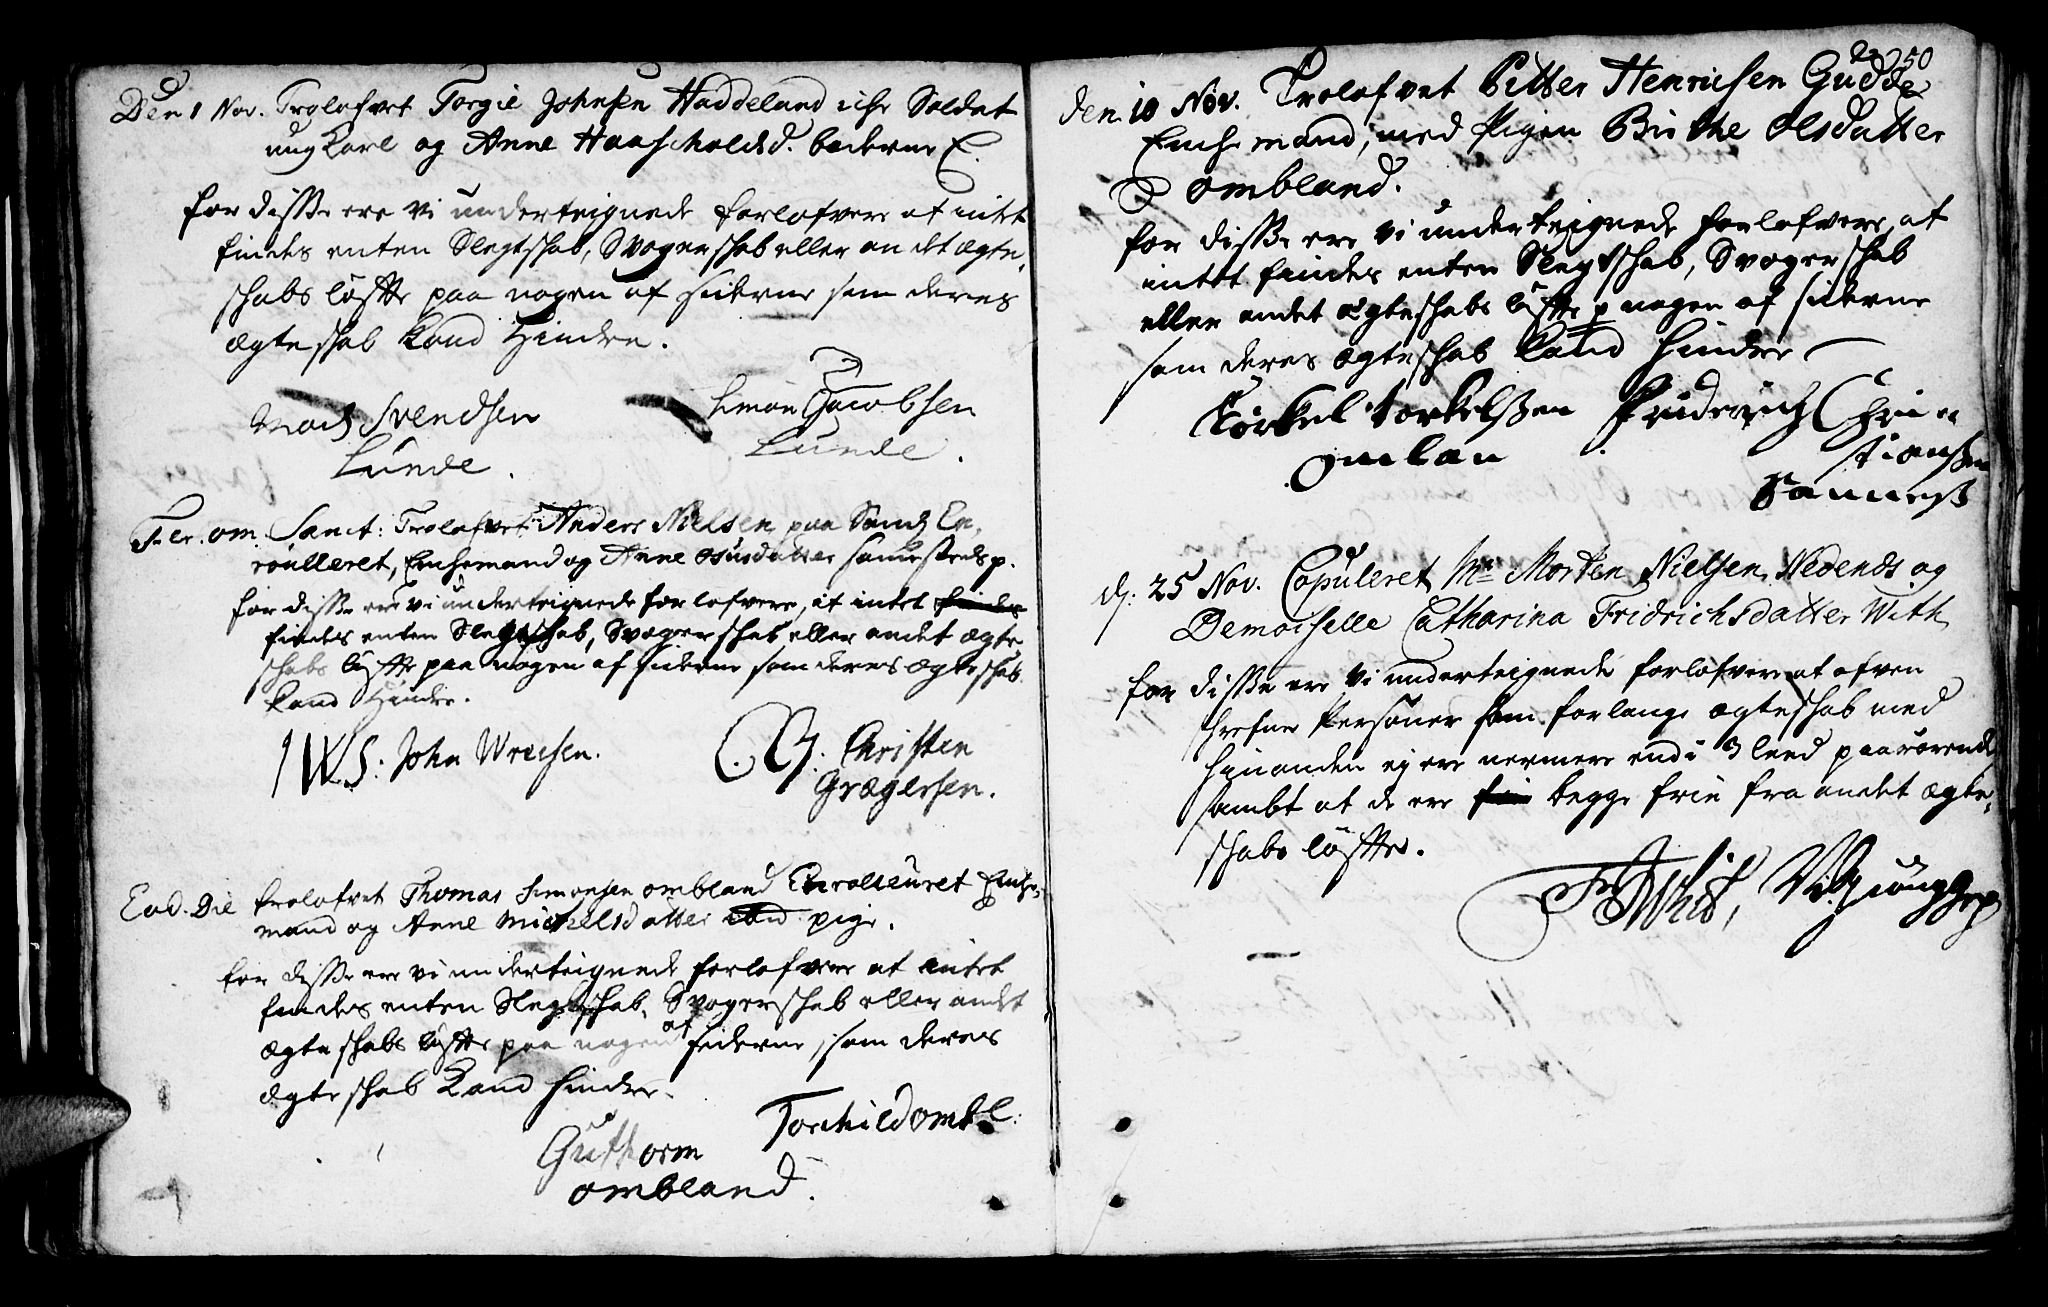 Den 1 Nov. Trolofvet Torgie Johnsen Haddeland iche Soldat
ung Karl og Anne Haascholds d. bederne E.
for disse ere vi underteignede forlofvere at intet
findes enten Slegtschab, Svogerschab eller andet ægte,
schabs løfte paa nogen af siderne som deres
ægteschab kand Hindre.
Mads Svendsen
Lunde.
Simon Jacobsen
Lunde.
Fer. om. Sanct: Trolofvet Anders Nielsen paa Sand En,
roulleret, Enchemand og Anne Osusdatter samesteds p.
for disse ere vi underteignede forlofvere, at intet
findes enten Slegtschab, Svogerschab eller andet ægte
schabs løfte paa nogen af siderne som deres ægteschab
kand Hindre.
IWS: John Wreesen.
C. G. Christen
Grægersen.
Eod. Die trolofvet Thomas Simonsen ombland Enrolleuret Enche,
mand og Anne Michelsdatter ibid pige.
for disse ere vi underteignede forlofvere at intet
findes enten Slegtschab, Svogerschab eller andet
ægteschabs løfte paa nogen af siderne, som deres
ægteschab kand hindre.
Torchild ombl:
Guthorm
ombland.
50
den 10 Nov. Trolofvet Pitter Henrichsen Gudde
Enchemand, med Pigen Birthe Olsdatter
ombland.
for disse ere vi underteignede forlofvere at
intet findes enten Slegtschab, Svogerschab
eller andet ægteschabs løfte p nogen af siderne
som deres ægteschab kand hindre
Torkel Torkelssen Friderich Chri
omlan stianssen
Sanness
d. 25 Nov. Copuleret Mr Morten Nielsen Nedenes og
Demoiselle Catharina Fridrichsdatter With
for disse ere vi underteignede forlofvere at ofven
schrefne Personer som forlange ægteschab med
hinanden ej ere nermere end i 3 leed paarørende
sambt at de ere begge frie fra andet ægte,
schabs løfter.
F With,